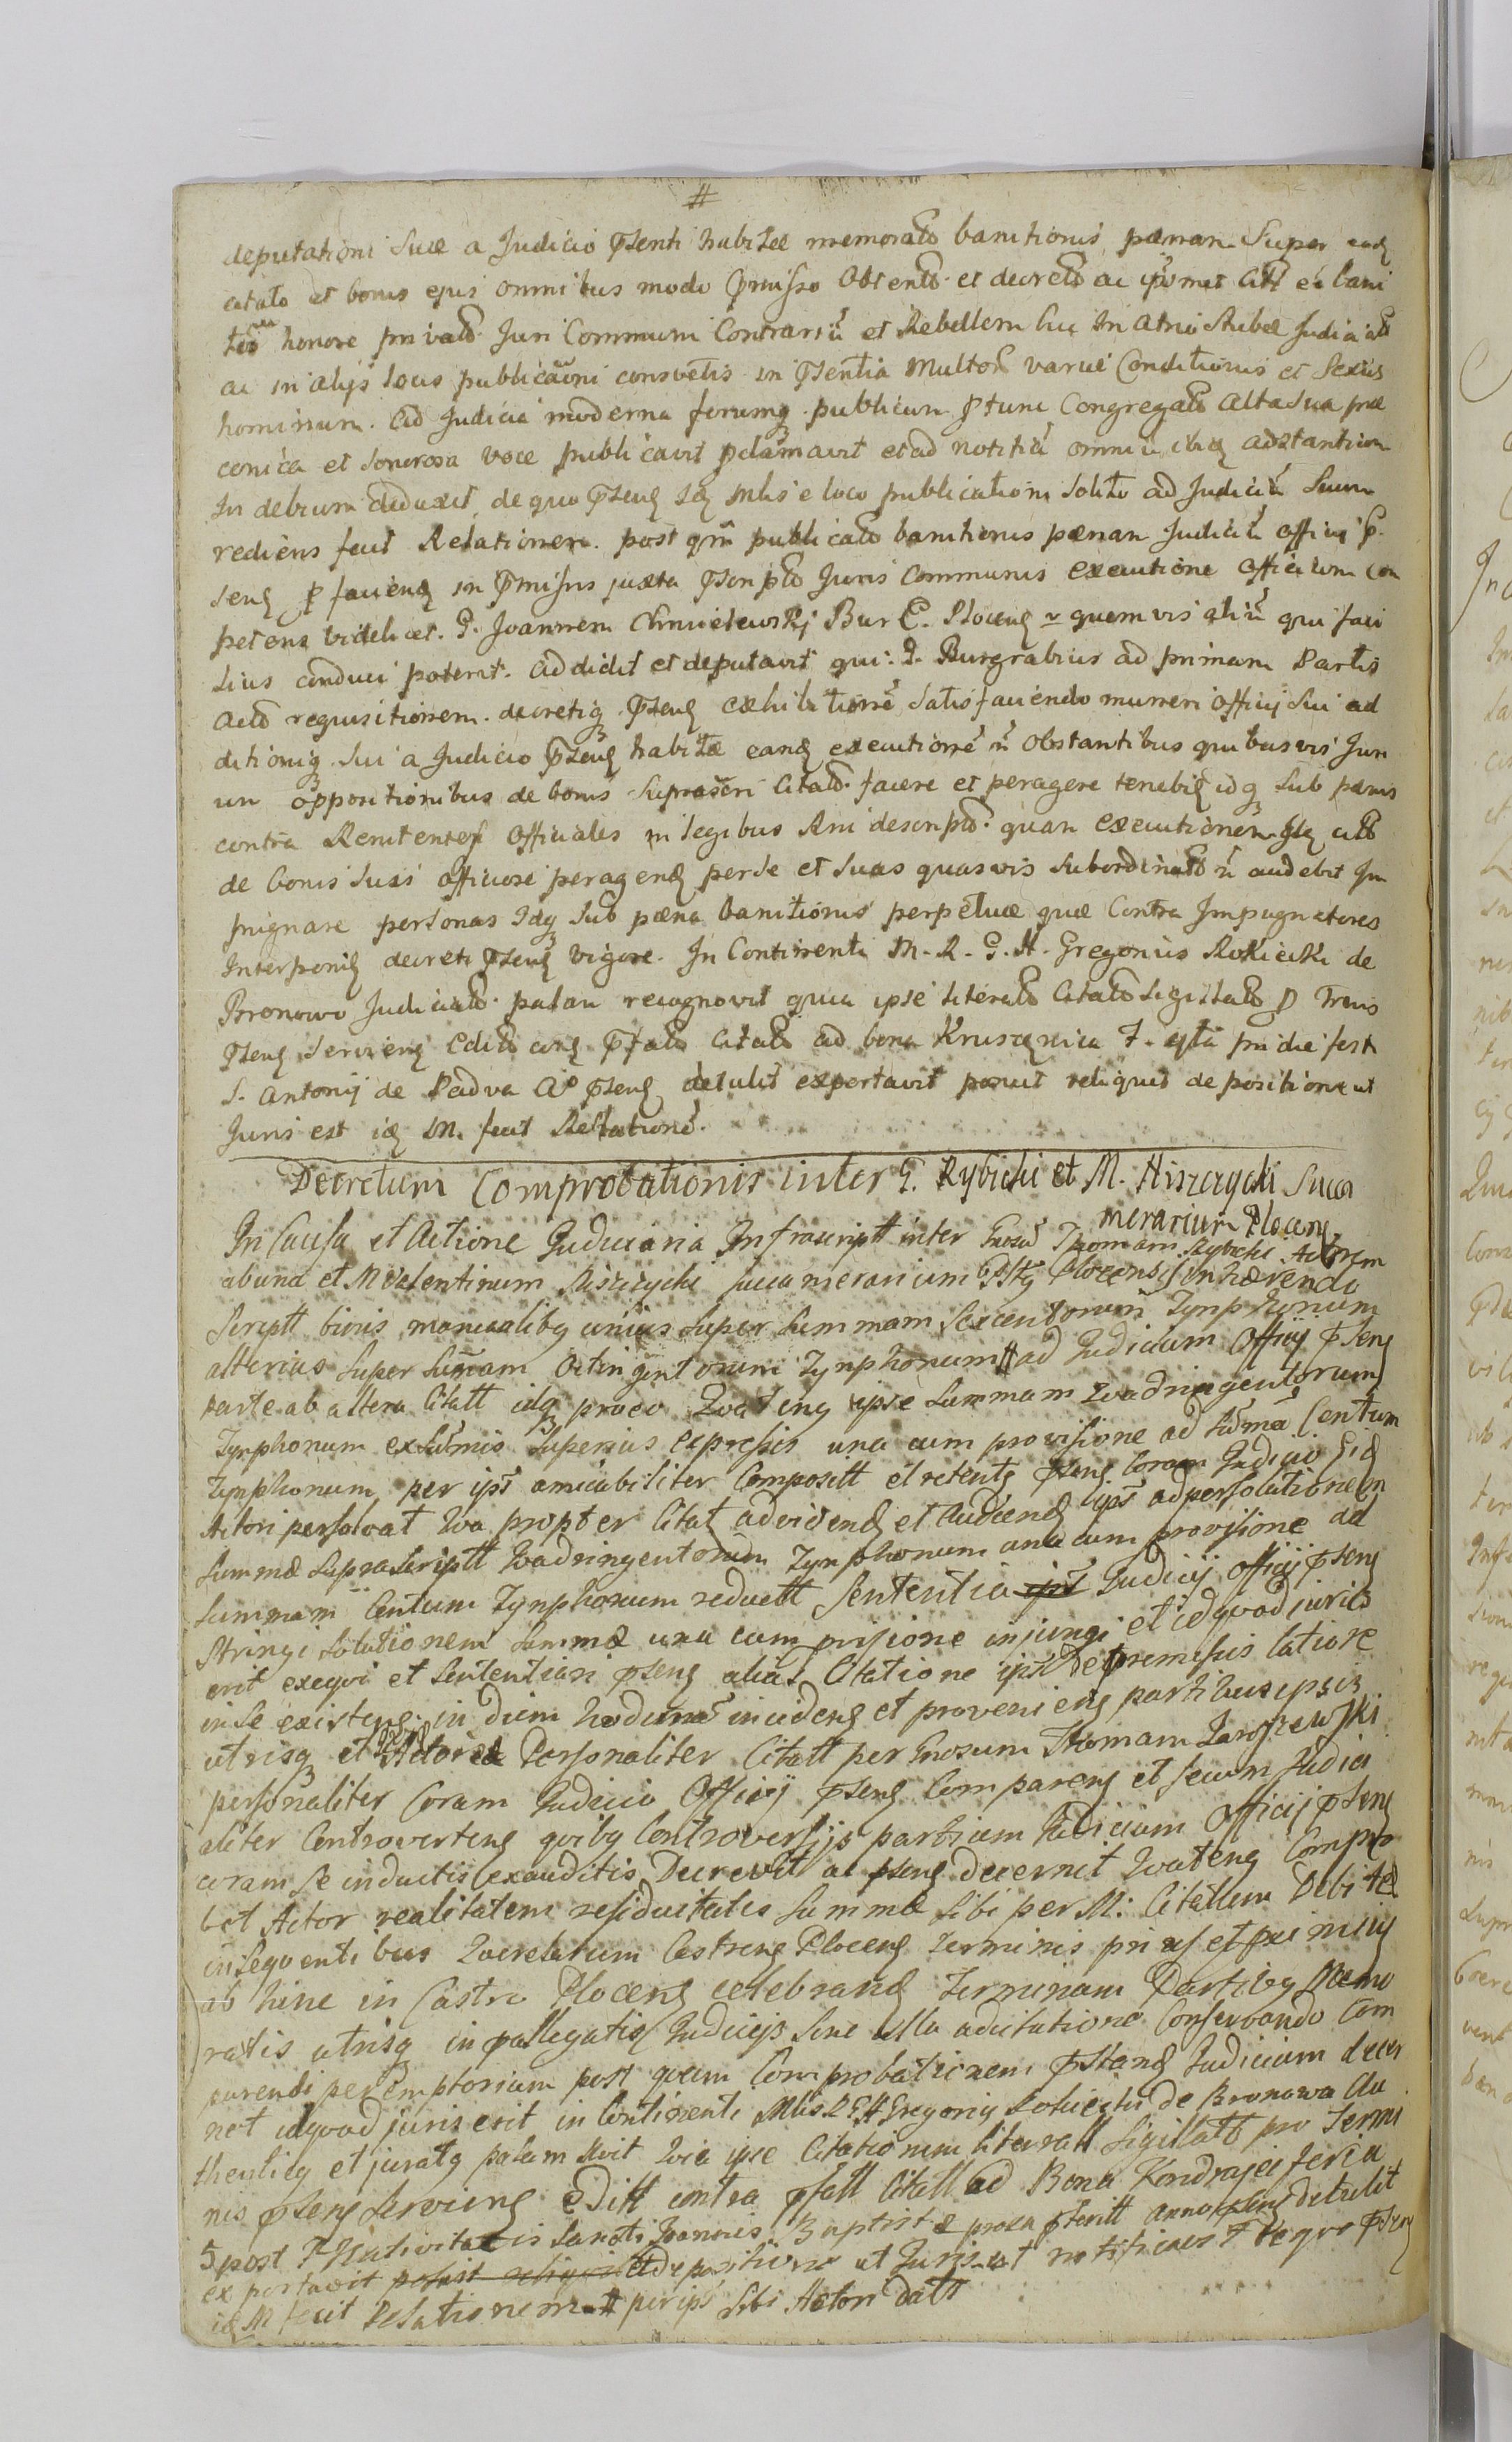 #
deputationi suæ a Judicio psenti habitæ memorato banitionis pænam super eund
citato et bonis ejus omnibus modo pmisso obtento et decreto ac ipsmet citt ex bani
tum honore privato Juri Communi Contrariu et Rebellem huc In atrio stubæ Judicialis
ac in alys locis publicationi consvetis in psentia multor variæ Conditionis et sexus
hominum. ad Judicia moderna forumq publicum ptunc Congregato alta sua præ
conica et sonorosa voce publicavit pclamavit et ad notitia omniu ibiq adstantium
In debitum deduxit, de quo pseng idq mlis e loco publicationi solito ad Judiciu suum
rediens fecit Relationem. post qm publicato banitionis pænam Judiciu officij p
seng p faciend in pmissis juxta pscripto Juris Communis executione officium com
petens videlicet. G. Joannem Chmielewskj Bur C. Ploceng v quemvis aliu qui faci
lius conduci poterit. addidit et deputavit qui: G. Burgrabius ad primam Partis
acto requisitionem. decretiq pseng exhibitione satisfaciendo muneri officij sui ad
ditioniq sui a Judicio pseng habitæ eand executione n obstantibus quibusvis Juri
um oppositionibus de bonis suprascri citato facere et peragere tenebit idq sub pænis
contra Renitentes officiales in legibus Rni descripto quam executionem Idq citto
de bonis suis officiose peragend per se et suas quasvis subordinato n audebit Im
pugnare personas Idq sub pæna banitionis perpetuæ quæ Contra Impugnatores
Interponit decreti pseng vigore. In Continenti M. R. G. H. Gregorius Rokicki de
Bronowo Judicialo palam recognovit quia ipse literato citato sigillato p Trmis
pseng servieng Edito cong pfato citato ad bona Kruszenica F. qta pridie festi
S. Antonij de Padva Ao pseng detulit exportavit posuit reliquit depositione ut
Juris est id M. fecit Relatione.
Decretum Comprobationis inter G. Rybicki et M. Hiszczycki Succa
merarium Ploceng
In Causa et Actione Judiciaria Infrascriptt inter Gnosu Thomam Rybicki Actorem
ab una et M Valentinum Hiszczycki succamerarium Ptlg Plocensis inhærendo
Scriptt binis manualibq unius super summam sexcentorum Tynphonum
alterius super sumam Octingentorum Tynphonum # ad Judicium Officij pseng
parte ab altera Citatt idq proeo Qvateng ipse summam Qvadringentorum
Tynphonum ex sumis superius expressis una cum provisione ad suma Centum
Tynphonum per ips amicabiliter Compositt et retentq pseng Coram Judicio Eid
Actori persolvat Qva propter Citat ad videnq et Audiend ips ad persolutionem
summæ supra scriptt Qvadringentorum Tynphonum una cum provisione ad
summam Centum Tynphonum reductt Sententia ips Judicij officij pseng
stringi solutionem summæ una cum prisione injungi et idqvod juris
erit exeqvi et Sententiari pseng alias Citatione ips de premissis latiore
in se existeng in diem hodierna incideng et provenieng partibus ipsis
utrisq et Actorea Personaliter Citatt per Gnosum Thomam Zaroszewski
personaliter Coram Judicio Officij pseng Compareng et secum Judici
aliter Controverteng qvibq Controversijs partium Judicium Officij pseng
coram se inductis exauditis Decrevit ac pseng decernit Qvateng Compro
bet Actor realitatem residuitatis summæ sibi per M: Citatum Debitæ
in seqventibus Qverelarum Castreng Ploceng Terminis prius et primig
ab hinc in Castro Ploceng celebrand Terminum Partibq Memo
ratis utrisq in pallegatis Judicijs sine ulla adcitatione Conservando Com
parendi peremptorium post qvam Comprobationem pstand Judicium decer
net idqvod juris erit in Continenti Mlis R G H Gregoriq Rokicki de Bronowo Au
thenticq et juratq palam Rvit Qvia ipse Citationem literatt Sigillatt pro Termi
nis pseng servieng editt contra pfatt Citatt ad Bona Kondrajec feria
5 post F Nativitatis Sancti Joannis Baptistæ proxa pteritt anno pseng detulit
exportavit posuit reliqvit et depositione ut Juris est notificavit de qvo pseng
id M fecit Relationem # per ips sibi Actori datt